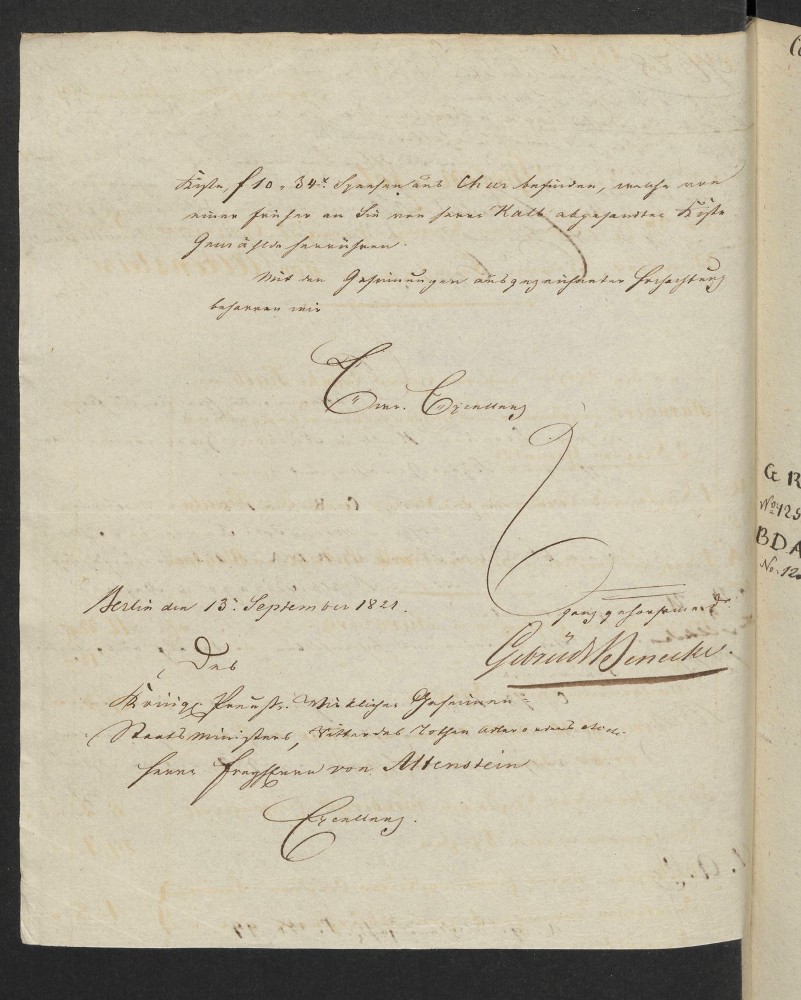 Kiste, f 10, 34x. Speesen aus Chur befinden, welche von
einer früher an Sie von Herrn Kalt abgesandten Kiste
Gemählde herrühren.
Mit den Gesinnungen ausgezeichneter Hochachtung
beharren wir
Ewr. Excellenz
Berlin den 13. September 1821.
ganz gehorsamen
Gebrüdr Benecke.
Des
Königl. Preuss. Wirklichen Geheimen
Staats Ministers, Ritter des Rothen Adler Ordens
Herrn Freyherrn von Altenstein
Excellenz.
No. 125
BDA
No. 12